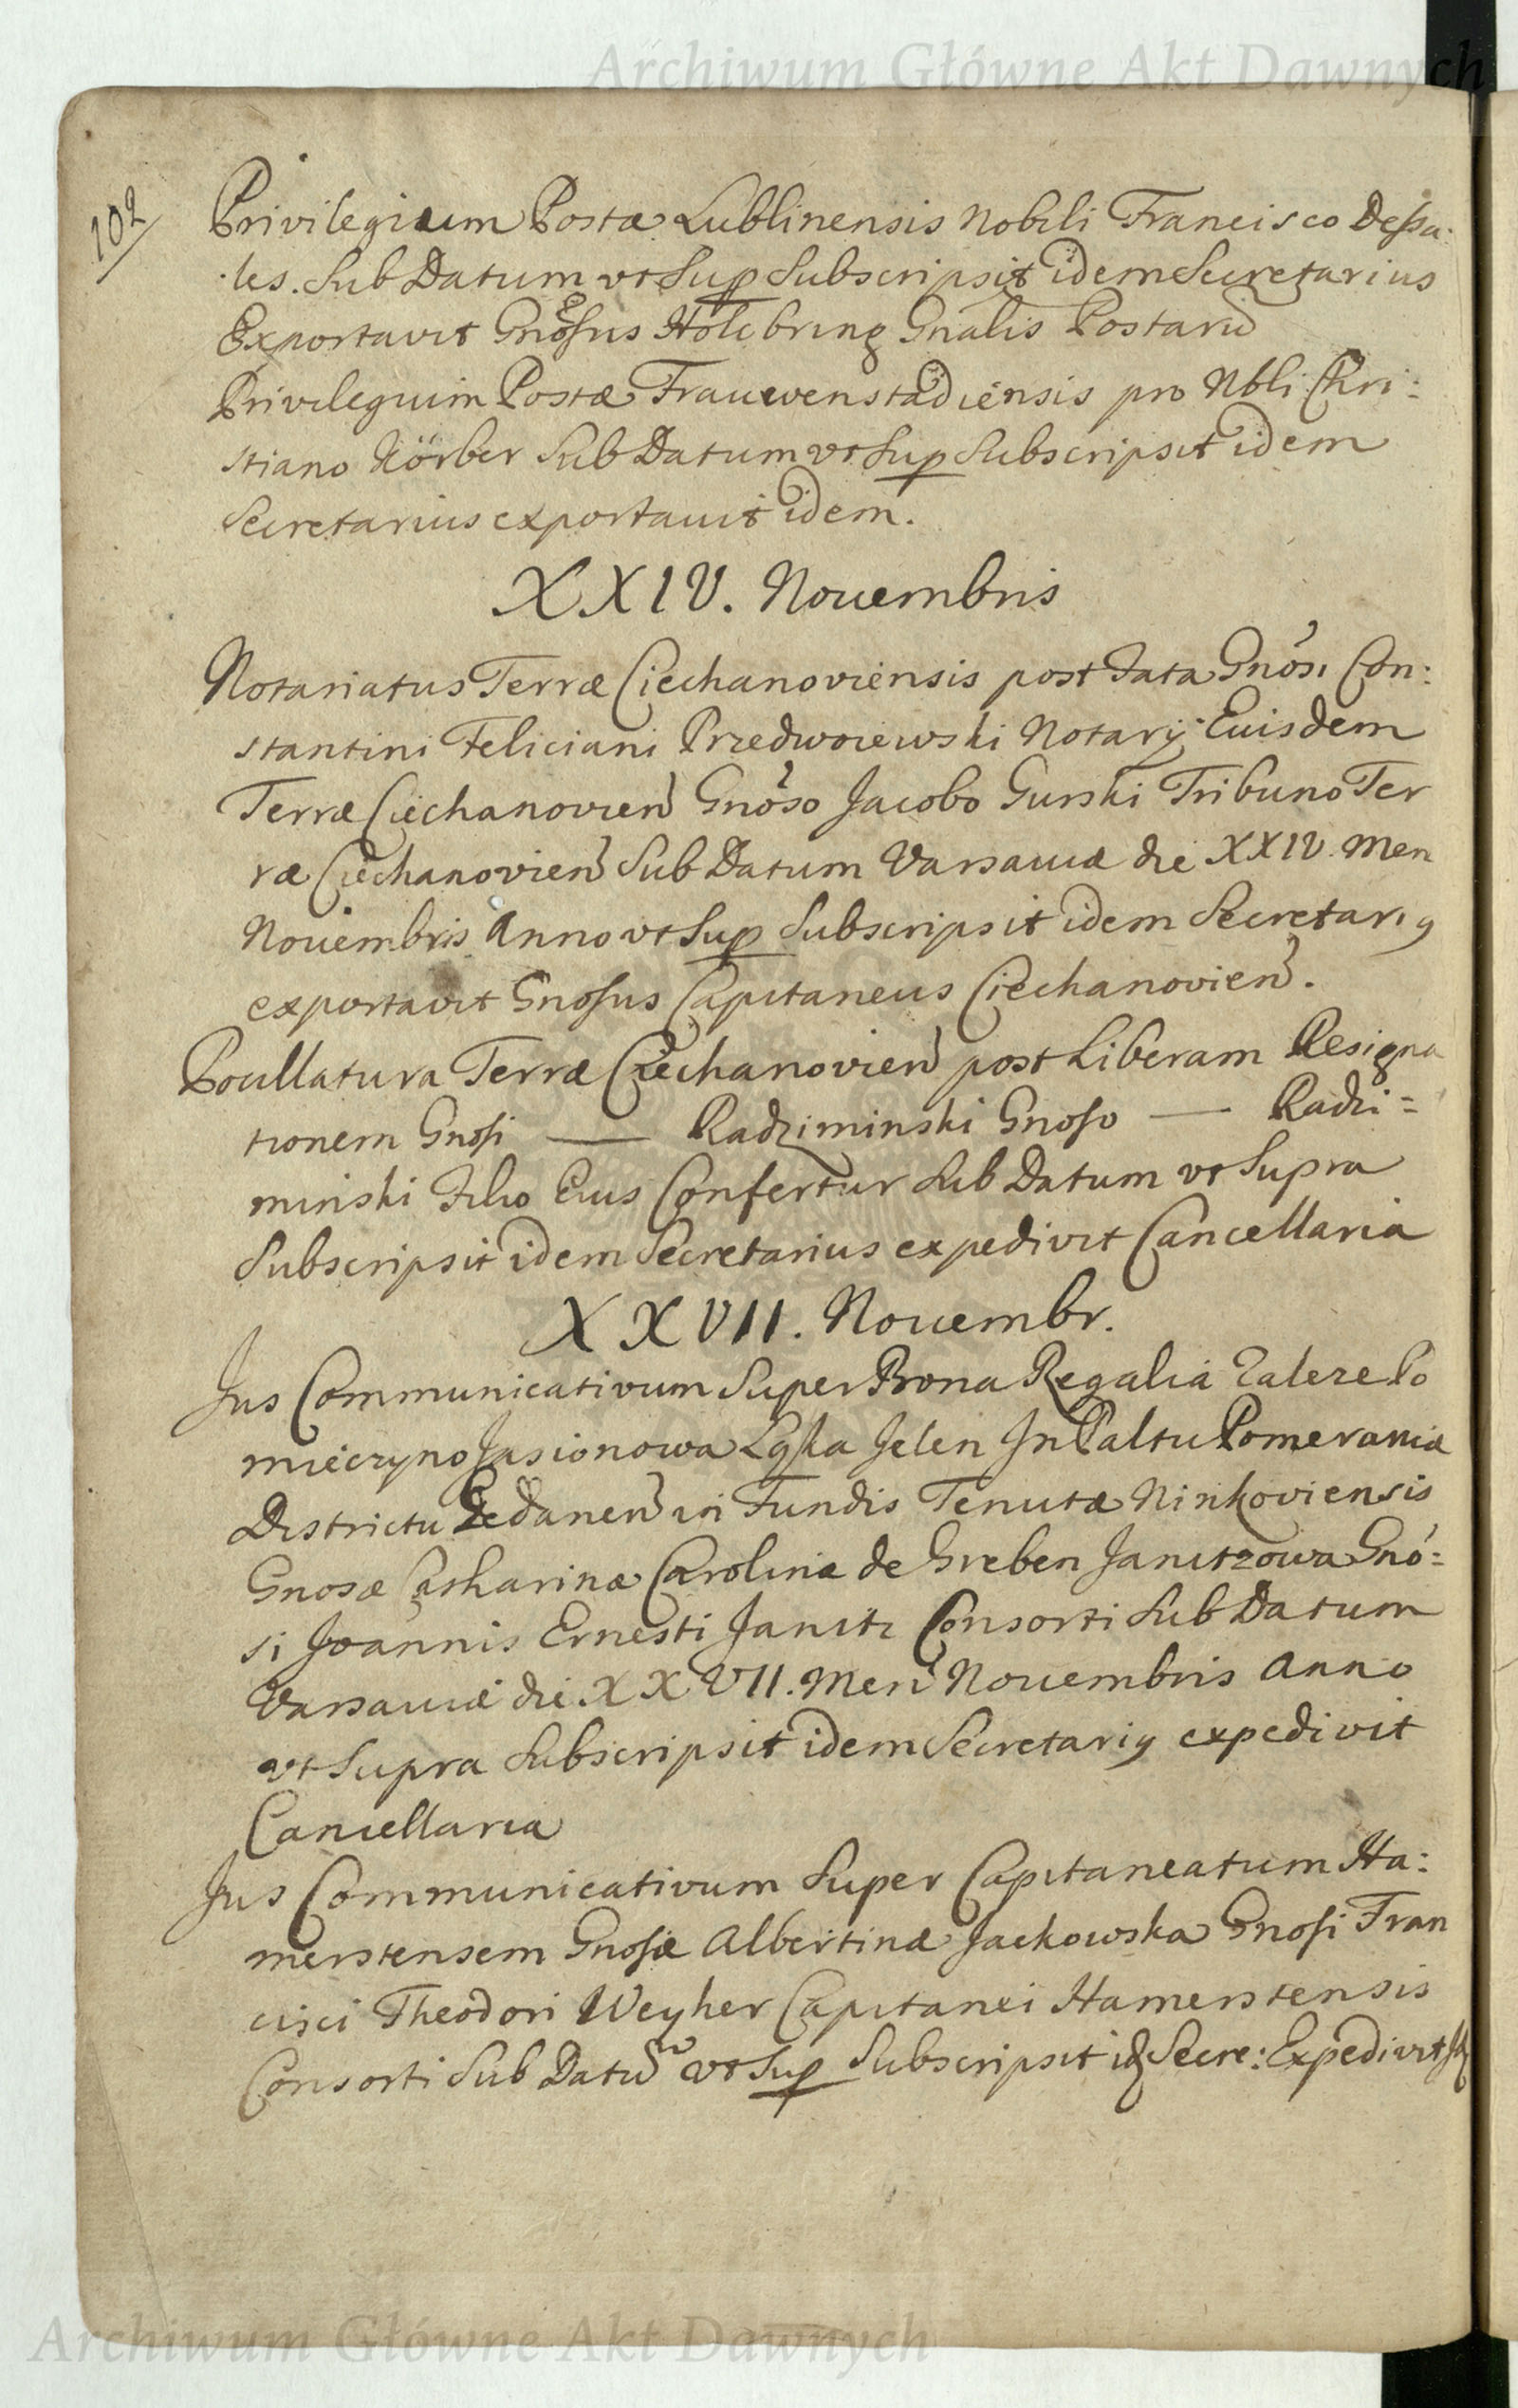 Archiwum Główne Akt Dawnych
102
Privilegium Postæ Lublinensis Nobili Francisco Dessa:
les. Sub Datum vt Sup Subscripsit idem Secretarius
Exportavit Gnosus Holebring Gnalis Postarū
Privilegium Postæ Frauwenstadiensis pro Nbli Chri:
stiano Körber Sub Datum vt Sup Subscripsit idem
Secretarius exportauit idem.
XXIV. Nouembris
Notariatus Terræ Ciechanoviensis post Fata Gnosi Con:
stantini Feliciani Przedwoiewski Notarij Eiusdem
Terræ Ciechanovien Gnoso Jacobo Gurski Tribuno Ter
ræ Ciechanovien Sub Datum Varsauiæ die XXIV. Men
Nouembris Anno vt Sup Subscripsit idem Secretari9
exportavit Gnosus Capitaneus Ciechanovien.
Pocillatura Terræ Ciechanovien post Liberam Resigna
tionem Gnosi — Radziminski Gnoso — Radzi=
minski Filio Eius Confertur Sub Datum vt Supra
Subscripsit idem Secretarius expedivit Cancellaria
XXVII. Nouembr.
Jus Communicativum Super Bona Regalia Zaleze Po
mieczyno Jasionowa Jelen In Paltu Pomeraniæ
Districtu Gedanen in Fundis Tenutæ Ninkoviensis
Gnosæ Catharinæ Carolinæ de Greben Janitzowa Gno=
si Joannis Ernesti Janitz Consorti Sub Datum
Varsauiæ die XXVII. Men Nouembris Anno
vt Supra Subscripsit idem Secretari9 expedivit
Cancellaria
Jus Communicativum Super Capitaneatum Ha:
merstensem Gnosæ Albertinæ Jackowska Gnosi Fran
cisci Theodori Weyher Capitanei Hamerstensis
Consorti Sub Datū vt Sup Subscripsit id Secre: Expedivit
Archiwum Główne Akt Dawnych